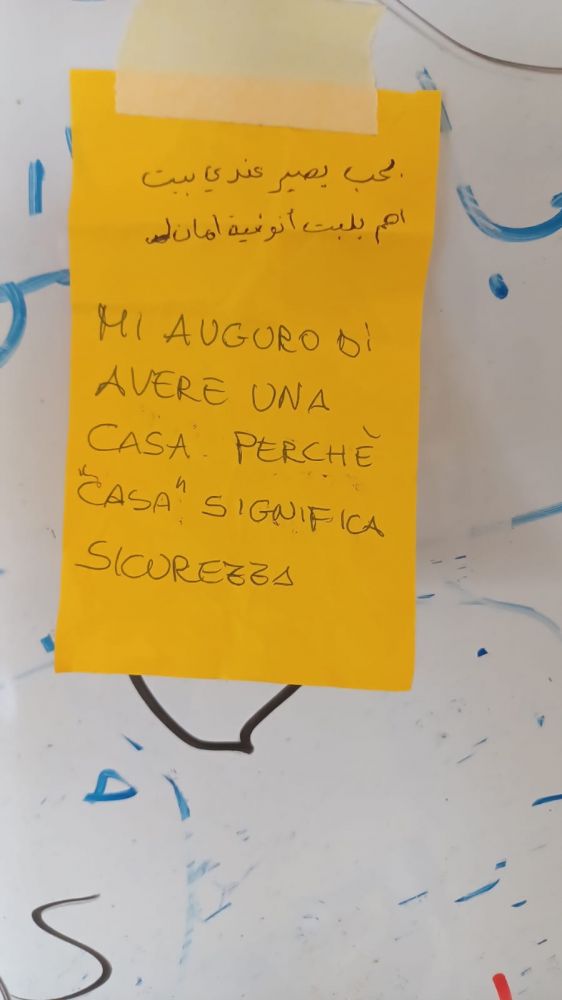 بحب يصير عندي بيت
اهم بلبيت أنو فية امان
MI AUGURO DÌ
AVERE UNA
CASA. PERCHÈ
"CASA" SIGNIFICA
SICUREZZA